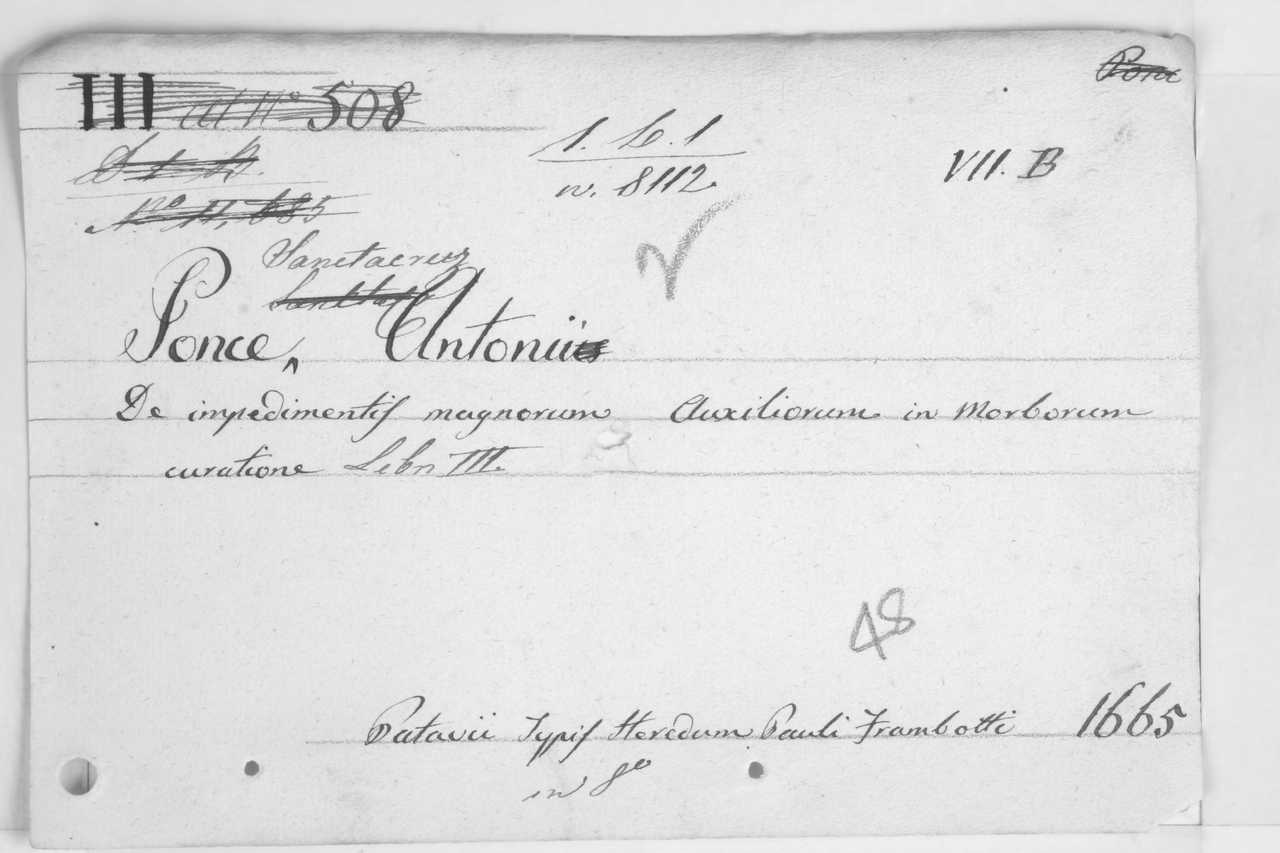 III 508
Ponc
1. L. 1
VII. B
n. 8112.
No 11, 685
Sanctacruz
Ponce, Antonii
De impedimentis magnorum Auxiliorum in Morborum
curatione Libri III.
48
Patavii Typis Heredum Pauli Frambotti 1665
in 8o